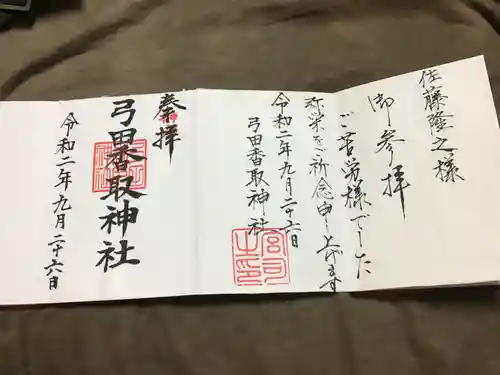 佐藤隆之様
御参拝
ご苦労様でした
弥栄を祈念申し上げます
令和二年九月二十六日
弓田香取神社
宮司之印
奉拝
弓田香取神社
令和二年九月二十六日